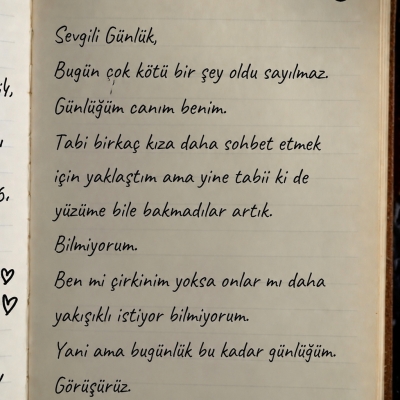 Sevgili Günlük,
Bugün çok kötü bir şey oldu sayılmaz.
Günlüğüm canım benim.
Tabi birkaç kıza daha sohbet etmek
için yaklaştım ama yine tabii ki de
yüzüme bile bakmadılar artık.
Bilmiyorum.
Ben mi çirkinim yoksa onlar mı daha
yakışıklı istiyor bilmiyorum.
Yani ama bugünlük bu kadar günlüğüm.
Görüşürüz.